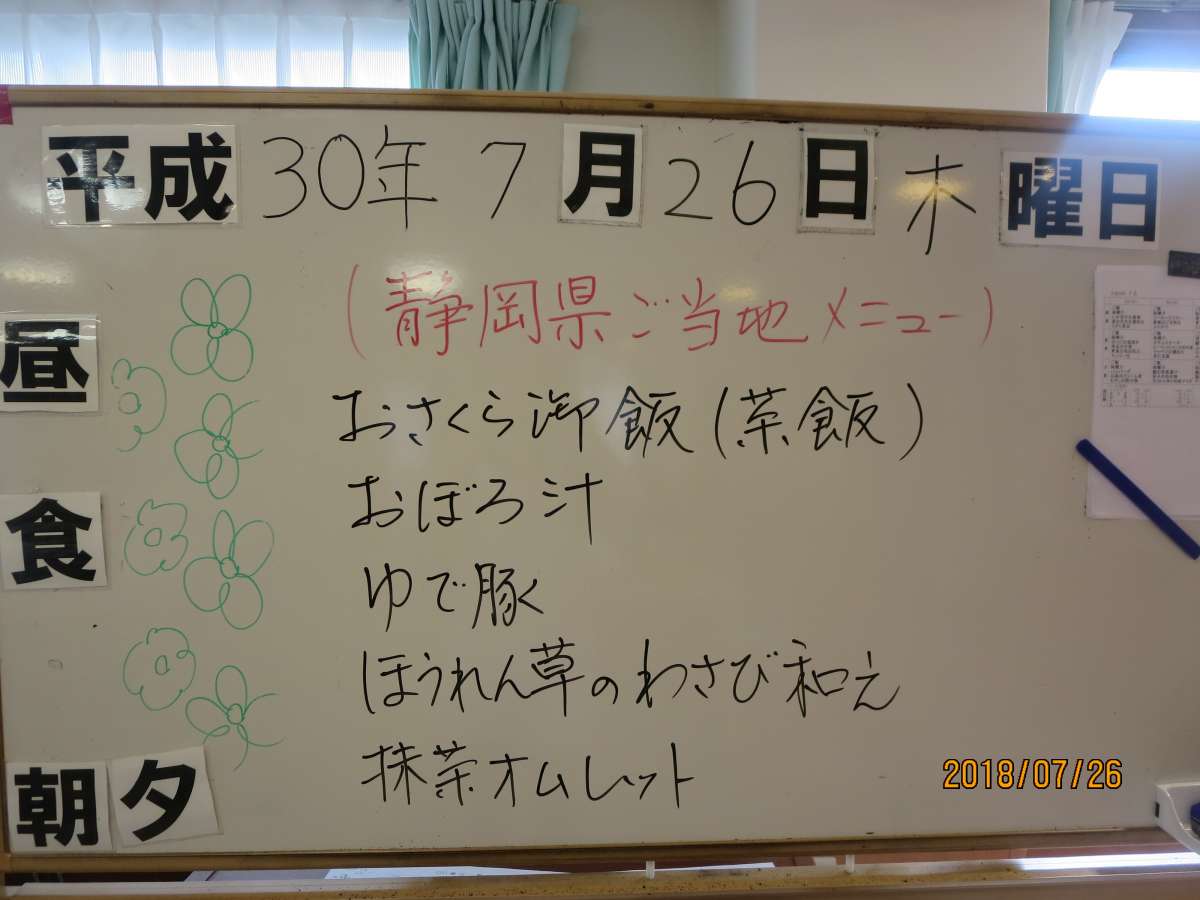 平成30年7月26日木曜日
(静岡県ご当地メニュー)
昼食
おさくら御飯(茶飯)
おぼろ汁
ゆで豚
ほうれん草のわさび和え
抹茶オムレット
朝夕
2018/07/26